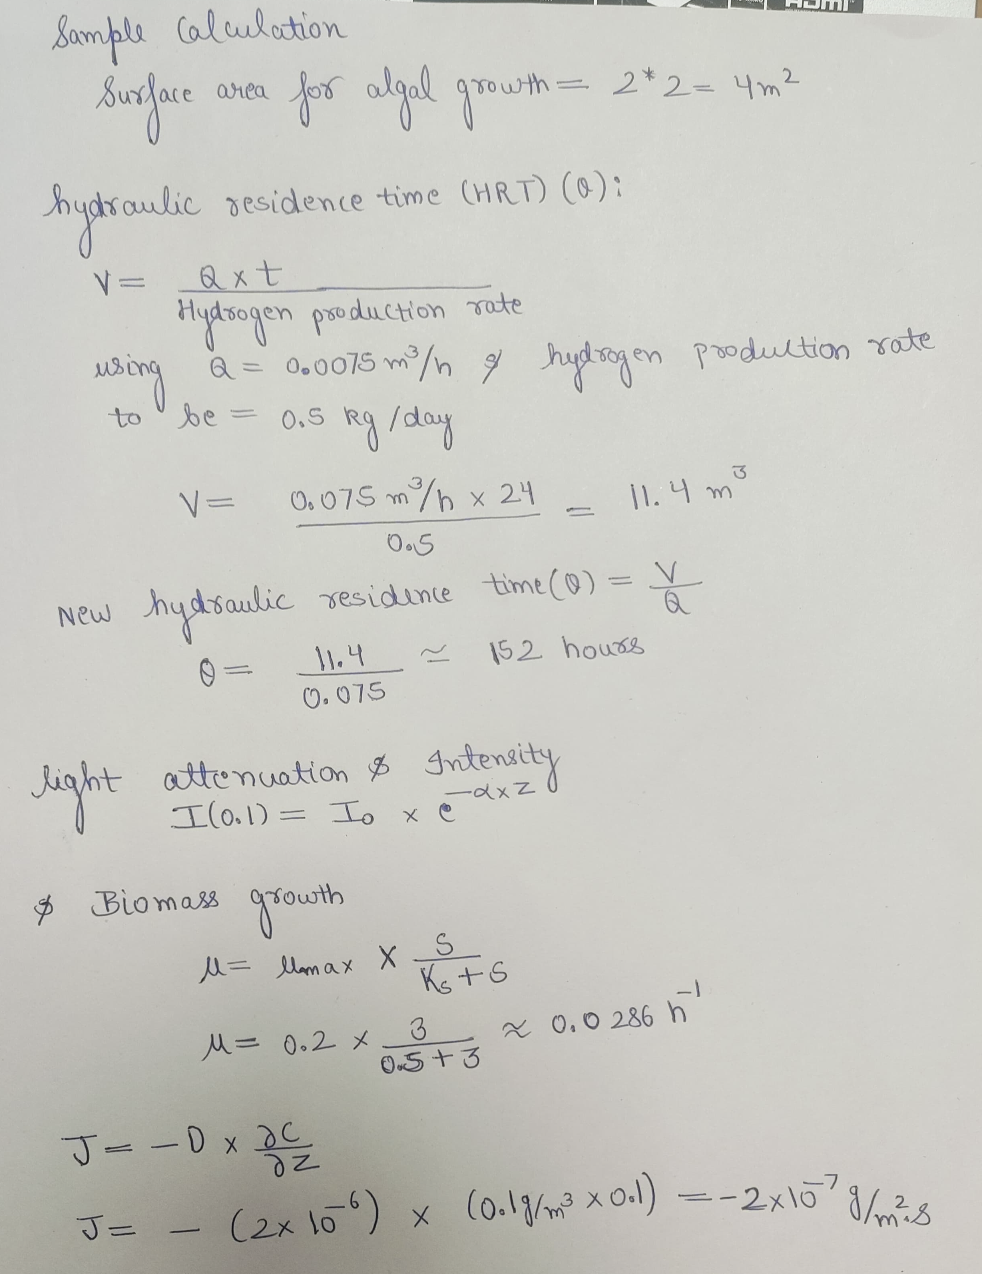 Sample Calculation
Surface area for algal growth = 2*2 = 4m²
hydraulic residence time (HRT) (θ):
V = Q x t / Hydrogen production rate
using Q = 0.0075 m³/h & hydrogen production rate
to be = 0.5 kg/day
V = 0.075 m³/h x 24 / 0.5 = 11.4 m³
New hydraulic residence time (θ) = V / Q
θ = 11.4 / 0.075 ≃ 152 hours
light attenuation & Intensity
I(0.1) = I₀ x e^(-αxz)
& Biomass growth
μ = μmax x S / Ks + S
μ = 0.2 x 3 / 0.5 + 3 ≈ 0.0286 h⁻¹
J = -D x ∂C / ∂z
J = - (2x10⁻⁶) x (0.1g/m³ x 0.1) = -2x10⁻⁷ g/m².s